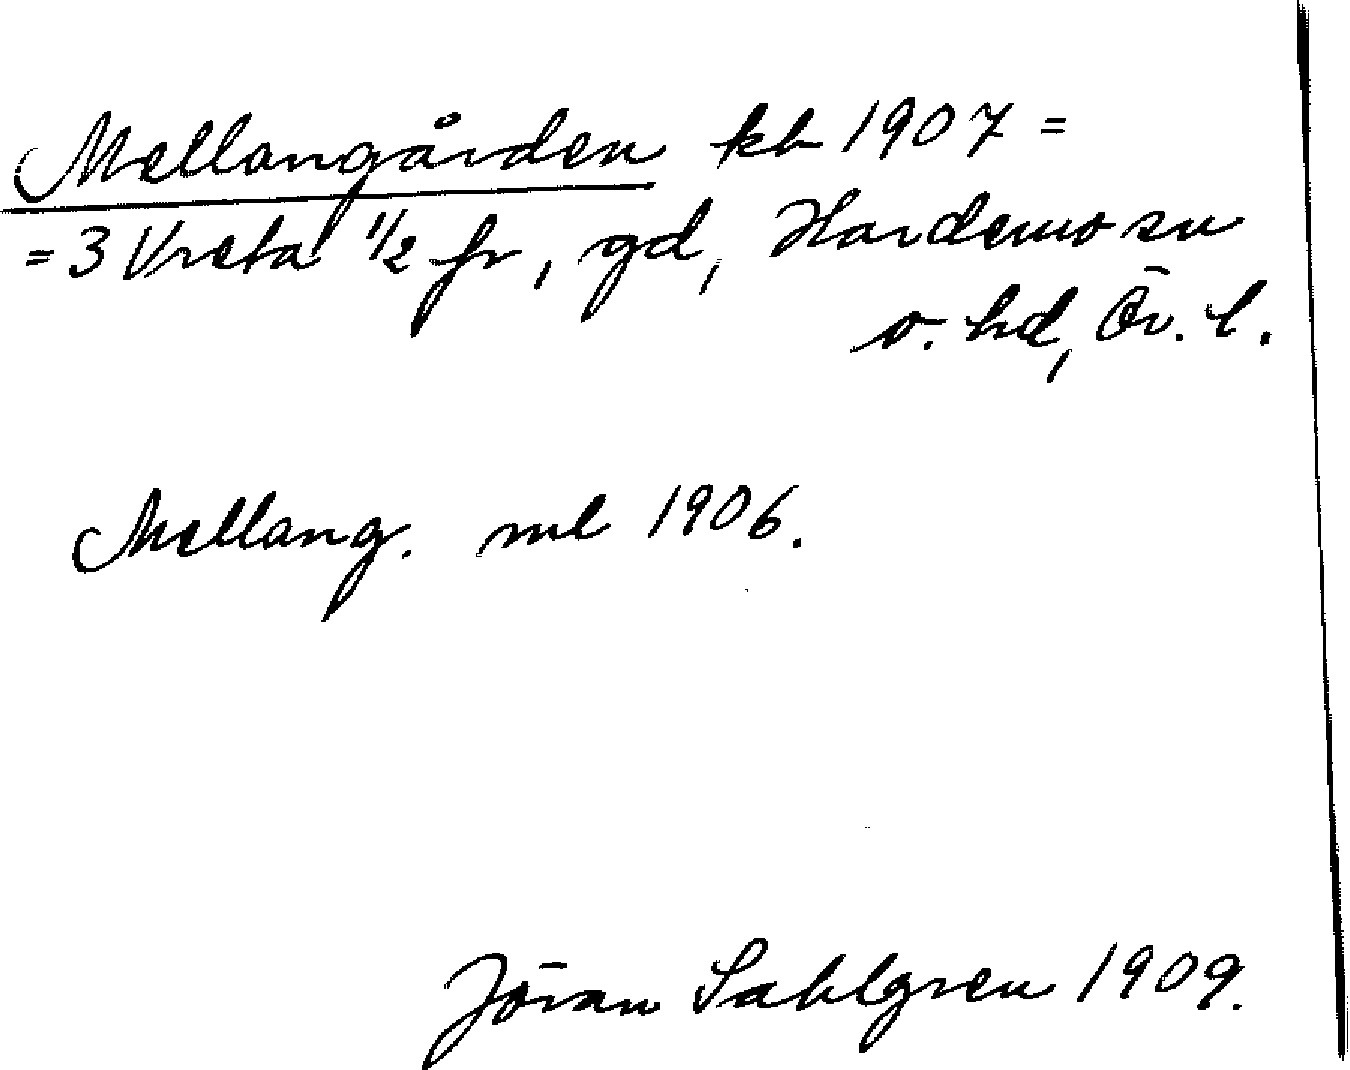 Mellangården kb 1907 =
= 3 Vreta 1/2 fr, gd, Hardemo sn
o. hd, Ör. l.
Mellang. ml 1906.
Jöran Sahlgren 1909.